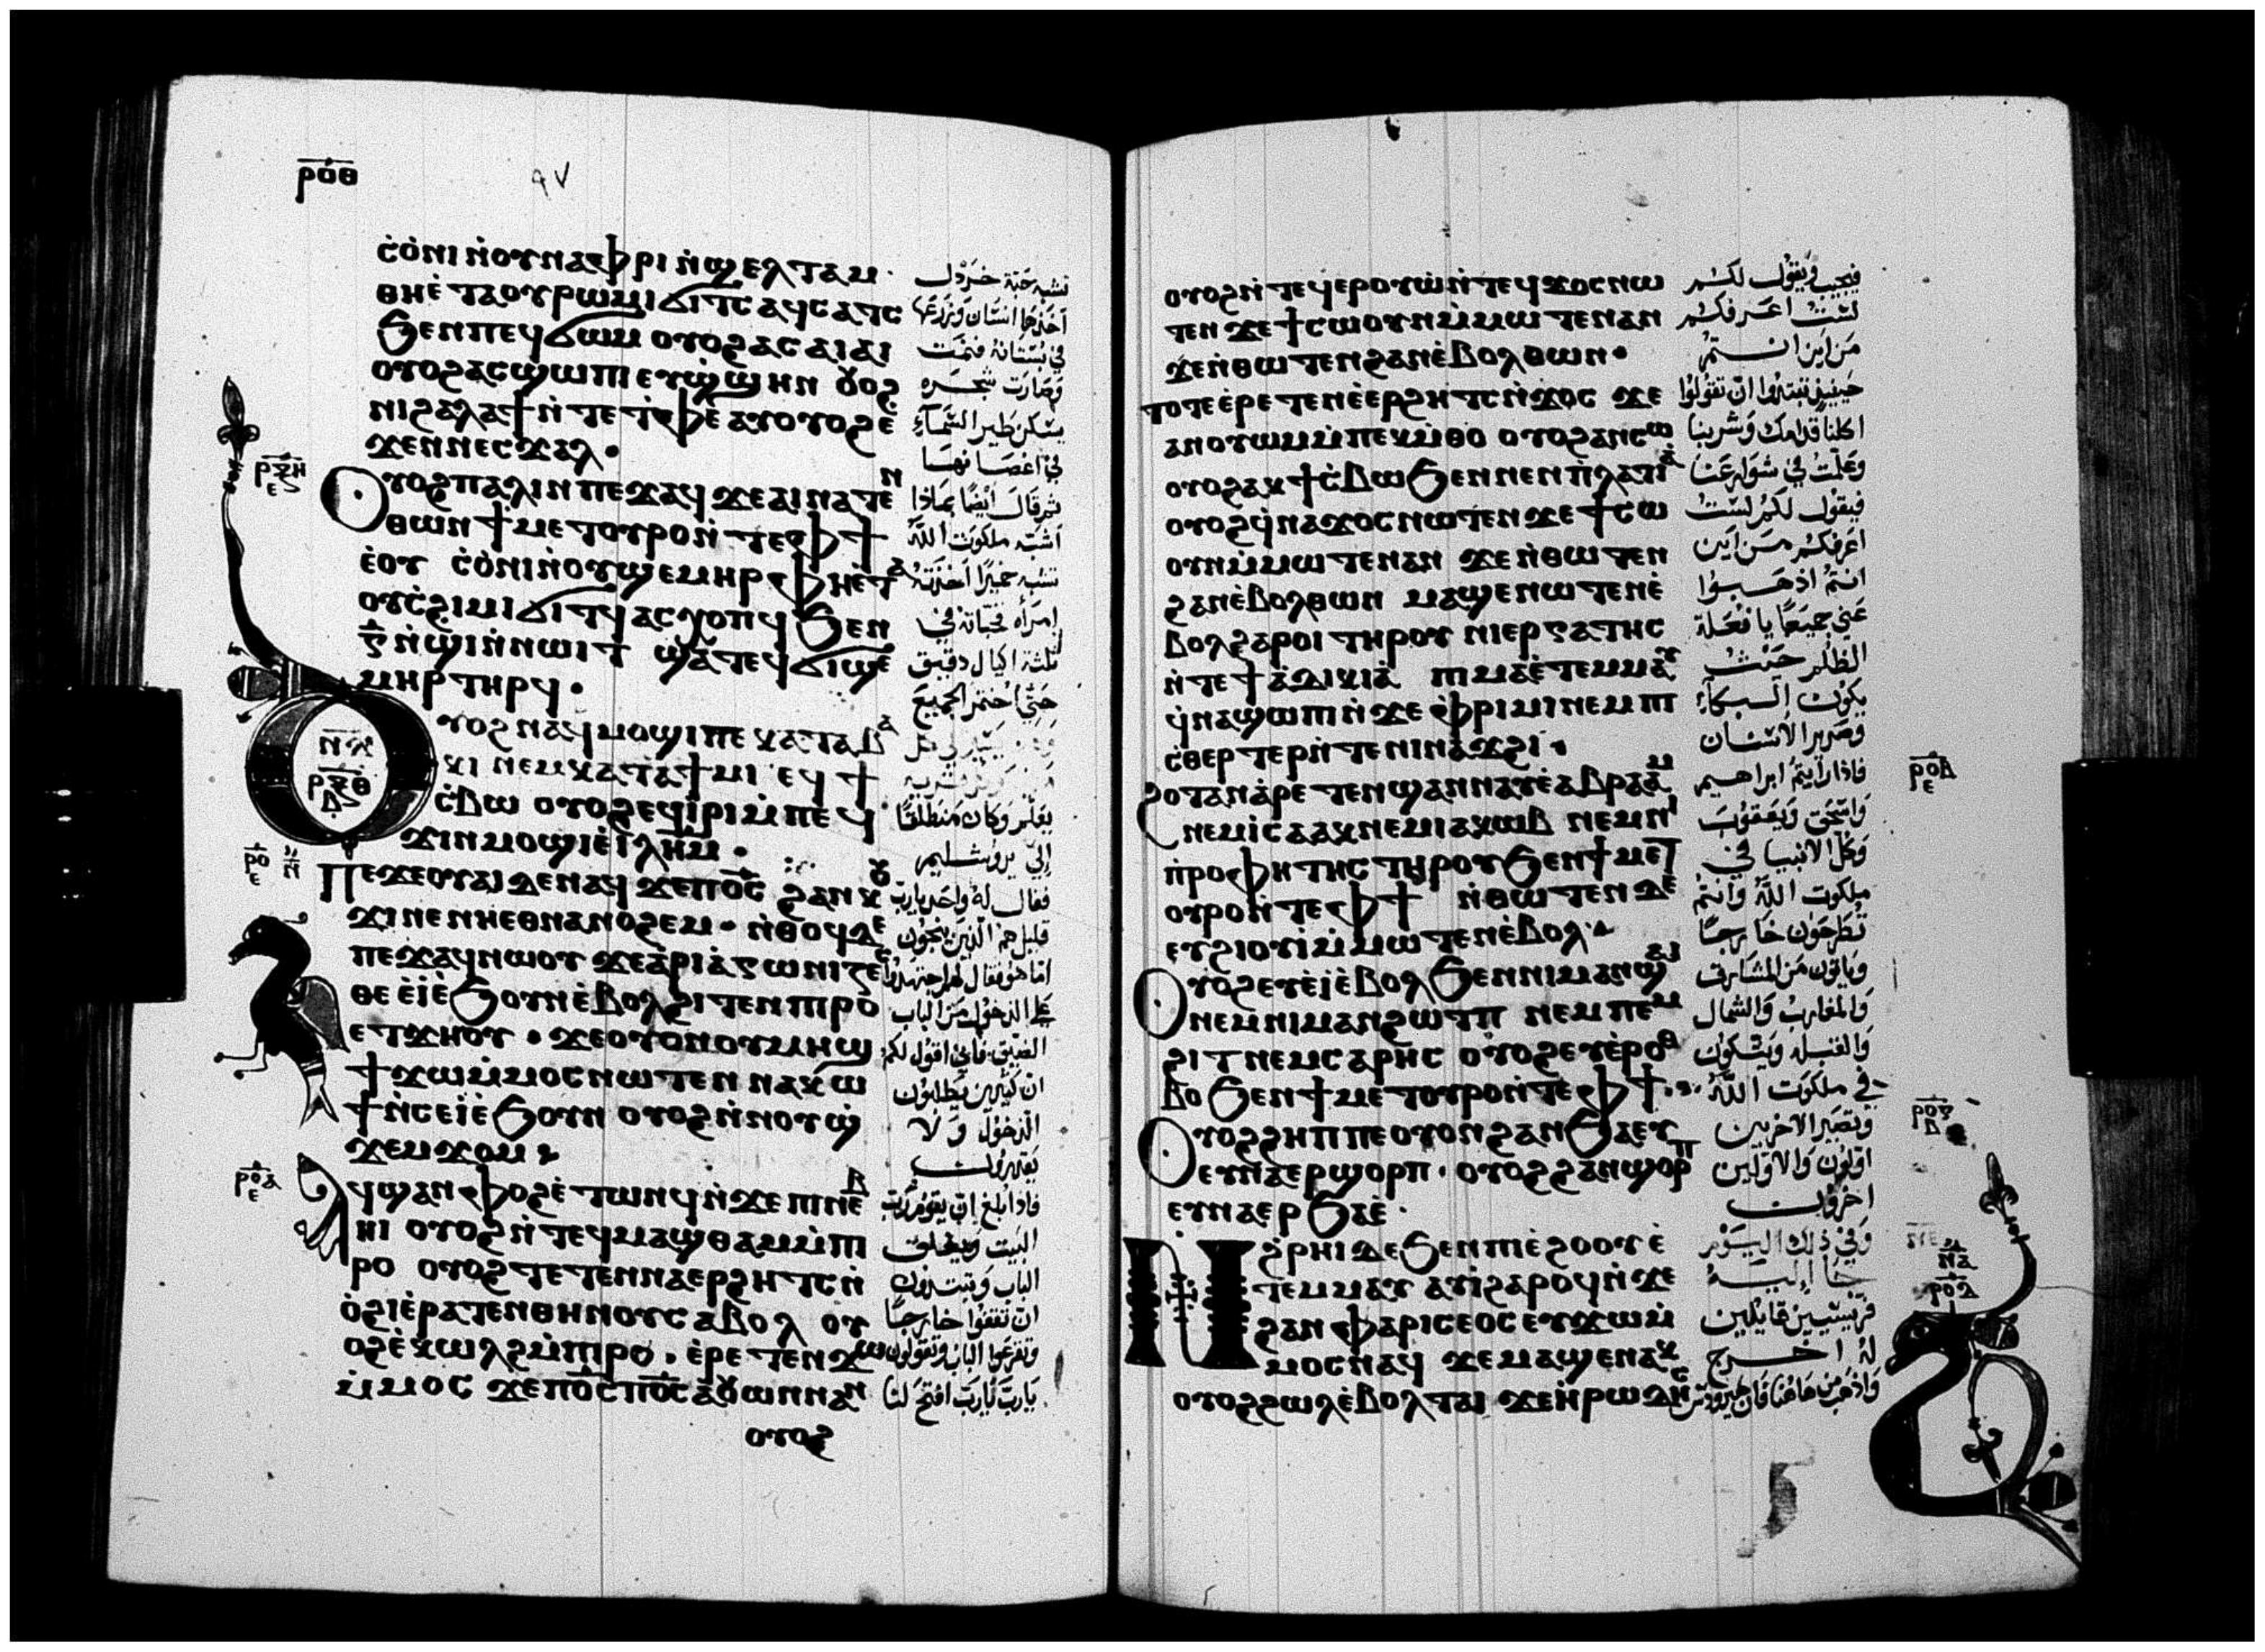 ⲣⲟⲑ
٩٧
ⲥ̇ⲟ̇ⲛⲓ ⲛ̇ⲟⲩⲛⲁⲫⲣⲓ ⲛ̇ϣⲉⲗⲧⲁⲙ
ⲑⲏⲉ̇ⲧⲁⲟⲩⲣⲱⲙⲓ ϭⲓⲧⲥ ⲁϥⲥⲁⲧⲥ
ϧⲉⲛⲡⲉϥϭⲱⲙ ⲟⲩⲟϩ ⲁⲥⲁⲓⲁⲓ
ⲟⲩⲟϩ ⲁⲥϣⲱⲡⲓ ⲉⲩϣ̇ϣⲏⲛ ⲟⲩⲟϩ
ⲛⲓϩⲁⲗⲁϯ ⲛ̇ⲧⲉⲧ̇ⲫⲉ ⲁⲩⲟⲩⲟϩ ⲉ̇
ϫⲉⲛⲛⲉⲥϫⲁⲗ
ⲣⲝⲏ
ⲉ
ⲟⲩⲟϩ ⲡⲁⲗⲓⲛ ⲡⲉϫⲁϥ ϫⲉⲁⲓⲛⲁⲧⲉⲛ
ⲑⲱⲛ ϯⲙⲉⲧⲟⲩⲣⲟ ⲛ̇ⲧⲉⲫϯ
ⲉ̇ⲟⲩ ⲥ̇ⲟ̇ⲛⲓ ⲛ̇ⲟⲩϣⲉⲙⲏⲣ ⲫⲏⲉ̇ⲧⲁ
ⲟⲩⲥ̇ϩⲓⲙⲓ ϭⲓⲧϥ ⲁⲥⲭⲟⲡϥ ϧⲉⲛ
ⲅ̄ ⲛ̇ϣ̇ⲓ ⲛ̇ⲛⲱⲓⲧ ϣⲁⲧⲉϥϭⲓϣⲉ
ⲙⲏⲣ ⲧⲏⲣϥ
ⲛ
ⲣⲝⲑ
ⲇ
ⲟⲩⲟϩ ⲛⲁϥⲙⲟϣⲓ ⲡⲉ ⲕⲁⲧⲁⲃⲁ
ⲕⲓ ⲛⲉⲙⲕⲁⲧⲁϯⲙⲓ ⲉϥϯ
ⲥ̇ⲃⲱ ⲟⲩⲟϩ ⲉϥⲓ̇ⲣⲓ ⲙ̇ⲡⲉϥ
ϫⲓⲛⲙⲟϣⲓ ⲉ̇ⲓ̇ⲗⲏⲙ
ⲣⲟ
ⲉ
ⲡⲉϫⲉⲟⲩⲁⲓ ⲇⲉ ⲛⲁϥ ϫⲉⲡⲟ̄ⲥ̄ ϩⲁⲛⲕⲟⲩ
ϫⲓ ⲛⲉ ⲛⲏⲉⲑⲛⲁⲛⲟϩⲉⲙ ⲛ̇ⲑⲟϥⲇⲉ
ⲡⲉϫⲁϥ ⲛⲱⲟⲩ ϫⲉⲁ̇ⲣⲓⲁ̇ⲅⲱⲛⲓⲍⲉⲥ
ⲑⲉ ⲉ̇ⲓ̇ⲉ̇ϧⲟⲩⲛ ⲉ̇ⲃⲟⲗϩⲓⲧⲉⲛ ⲡⲓⲣⲟ
ⲉⲧϫⲏⲟⲩ ϫⲉⲟⲩⲟⲛ ⲟⲩⲙⲏϣ
ϯϫⲱⲙ̇ⲙⲟⲥ ⲛⲱⲧⲉⲛ ⲛⲁⲕⲱ
ϯ ⲛ̇ⲥⲉⲓ̇ⲉ̇ϧⲟⲩⲛ ⲟⲩⲟϩ ⲛ̇ⲛⲟⲩϣ̇
ϫⲉⲙϫⲟⲙ
ⲣⲟⲁ
ⲉ
ⲁϥϣⲁⲛⲫⲟϩ ⲉ̇ⲧⲱⲛϥ ⲛ̇ϫⲉ ⲡⲓⲛⲉⲃ
ⲏⲓ ⲟⲩⲟϩ ⲛ̇ⲧⲉϥⲙⲁϣⲑⲁⲙ ⲙ̇ⲡⲓ
ⲣⲟ ⲟⲩⲟϩ ⲧⲉⲧⲉⲛⲛⲁⲉⲣϩⲏⲧⲥ ⲛ̇
ⲟ̇ϩⲓ ⲉ̇ⲣⲁⲧⲉⲛⲑⲏⲛⲟⲩ ⲥⲁⲃⲟⲗ ⲟⲩ
ⲟϩ ⲉ̇ⲕⲱⲗϩ ⲙ̇ⲡⲓⲣⲟ ⲉ̇ⲣⲉⲧⲉⲛϫⲱ
ⲙ̇ⲙⲟⲥ ϫⲉⲡⲟ̄ⲥ̄ ⲡⲟ̄ⲥ̄ ⲁⲟⲩⲱⲛ ⲛⲁⲛ
ⲟⲩⲟϩ
تشبه حبة خردل
اخذها انسان وزرعها
في بستانه فنمت
وصارت شجره
يسكن طير السماء
في اغصانها
ثم قال ايضا بماذا
اشبه ملكوت الله
تشبه خميرا اخذته
امرأه فخبأته في
ثلثة اكيال دقيق
حتى اختمر الجميع
يعلم وكان منطلقا
الى يروشليم
فقال له واحد يارب
قليل هم الذين ينجون
اما هو فقال لهم اجتهدوا
على الدخول من الباب
الضيق فاني اقول لكم
ان كثيرين يطلبون
الدخول ولا
يقدرون
فاذا بلغ ان يقوم رب
البيت ويغلق
الباب وتبتدون
ان تقفوا خارجا
وتقرعوا الباب وتقولون
يارب يارب افتح لنا
ⲟⲩⲟϩ ⲛ̇ⲧⲉϥⲉⲣⲟⲩⲱ̇ ⲛ̇ⲧⲉϥϫⲟⲥ ⲛⲱ
ⲧⲉⲛ ϫⲉϯⲥⲱⲟⲩⲛ ⲙ̇ⲙⲱⲧⲉⲛ ⲁⲛ
ϫⲉⲛ̇ⲑⲱⲧⲉⲛ ϩⲁⲛⲉ̇ⲃⲟⲗ ⲑⲱⲛ
ⲧⲟⲧⲉ ⲉ̇ⲣⲉⲧⲉⲛⲉ̇ⲉⲣϩⲏⲧⲥ ⲛ̇ϫⲟⲥ ϫⲉ
ⲁⲛⲟⲩⲱⲙ ⲙ̇ⲡⲉⲕⲙ̇ⲑⲟ ⲟⲩⲟϩ ⲁⲛⲥⲱ
ⲟⲩⲟϩ ⲁⲕϯⲥ̇ⲃⲱ ϧⲉⲛ ⲛⲉⲛⲡ̇ⲗⲁⲧⲓⲁ̇
ⲟⲩⲟϩ ϥ̇ⲛⲁϫⲟⲥ ⲛⲱⲧⲉⲛ ϫⲉϯⲥⲱ
ⲟⲩⲛ ⲙ̇ⲙⲱⲧⲉⲛ ⲁⲛ ϫⲉⲛ̇ⲑⲱⲧⲉⲛ
ϩⲁⲛⲉ̇ⲃⲟⲗ ⲑⲱⲛ ⲙⲁϣⲉⲛⲱⲧⲉⲛ ⲉ̇
ⲃⲟⲗϩⲁⲣⲟⲓ ⲧⲏⲣⲟⲩ ⲛⲓⲉⲣⲅⲁⲧⲏⲥ
ⲛ̇ⲧⲉϯⲁ̇ⲇⲓⲕⲓⲁ̇ ⲡⲓⲙⲁ ⲉ̇ⲧⲉⲙⲙⲁⲩ
ϥ̇ⲛⲁϣⲱⲡⲓ ⲛ̇ϫⲉ ⲫ̇ⲣⲓⲙⲓ ⲛⲉⲙ ⲡⲓ
ⲥ̇ⲑⲉⲣⲧⲉⲣ ⲛ̇ⲧⲉ ⲛⲓⲛⲁϫϩⲓ
ϩⲟⲧⲁⲛ ⲁ̇ⲣⲉⲧⲉⲛϣⲁⲛⲛⲁⲩ ⲉ̇ⲁⲃⲣⲁⲁⲙ
ⲛⲉⲙ ⲓ̇ⲥⲁⲁⲕ ⲛⲉⲙ ⲓⲁⲕⲱⲃ ⲛⲉⲙ ⲛⲓ
ⲡ̇ⲣⲟⲫⲏⲧⲏⲥ ⲧⲏⲣⲟⲩ ϧⲉⲛϯⲙⲉⲧ
ⲟⲩⲣⲟ ⲛ̇ⲧⲉⲫϯ ⲛ̇ⲑⲱⲧⲉⲛ ⲇⲉ
ⲉⲩϩⲓⲟⲩⲓ̇ ⲙ̇ⲙⲱⲧⲉⲛ ⲉ̇ⲃⲟⲗ
ⲣⲟⲃ
ⲉ
ⲟⲩⲟϩ ⲉⲩⲉ̇ⲓ̇ ⲉ̇ⲃⲟⲗϧⲉⲛ ⲛⲓⲙⲁⲛϣⲁⲓ
ⲛⲉⲙ ⲛⲓⲙⲁⲛϩⲱⲧⲡ ⲛⲉⲙ ⲡⲉⲙ
ϩⲓⲧ ⲛⲉⲙ ⲥⲁⲣⲏⲥ ⲟⲩⲟϩ ⲉⲩⲉ̇ⲣⲟⲑ
ⲃⲟ ϧⲉⲛϯⲙⲉⲧⲟⲩⲣⲟ ⲛ̇ⲧⲉⲫϯ
ⲣⲟⲅ
ⲟⲩⲟϩ ϩⲏⲡⲡⲉ ⲟⲩⲟⲛ ϩⲁⲛϧⲁⲉⲩ
ⲉⲩⲛⲁⲉⲣϣⲟⲣⲡ ⲟⲩⲟϩ ϩⲁⲛϣⲟⲣⲡ
ⲉⲩⲛⲁⲉⲣϧⲁⲉ̇
ⲛⲁ
ⲣⲟⲇ
ⲛ̇ϩ̇ⲣⲏⲓ ⲇⲉ ϧⲉⲛ ⲡⲓⲉ̇ϩⲟⲟⲩ ⲉ̇
ⲧⲉⲙⲙⲁⲩ ⲁⲩⲓ̇ ϩⲁⲣⲟϥ ⲛ̇ϫⲉ
ϩⲁⲛⲫⲁⲣⲓⲥⲉⲟⲥ ⲉⲩϫⲱ ⲙ̇
ⲙⲟⲥ ⲛⲁϥ ϫⲉⲙⲁϣⲉⲛⲁⲕ
ⲟⲩⲟϩ ϩⲱⲗ ⲉ̇ⲃⲟⲗⲧⲁⲓ ϫⲉⲏ̇ⲣⲱⲇⲏⲥ
فيجيب ويقول لكم
لست اعرفكم
من اين انتم
حينيذ تبتدوا ان تقولوا
اكلنا قدامك وشربنا
وعلمت في شوارعنا
فيقول لكم لست
اعرفكم من اين
انتم اذهبوا
عني جميعا يا فعلة
الظلم حيث
يكون البكاء
وصرير الاسنان
فاذا رايتم ابراهيم
واسحق ويعقوب
وكل الانبيا في
ملكوت الله وانتم
تطرحون خارجا
وياتون من المشارق
والمغارب والشمال
والقبله ويتكون
في ملكوت الله
وتصير الاخرين
اولون والاولين
اخرون
وفي ذلك اليوم
جا إليه
فريسيين قايلين
له اخرج
واذهب من هاهنا فان هيرودس